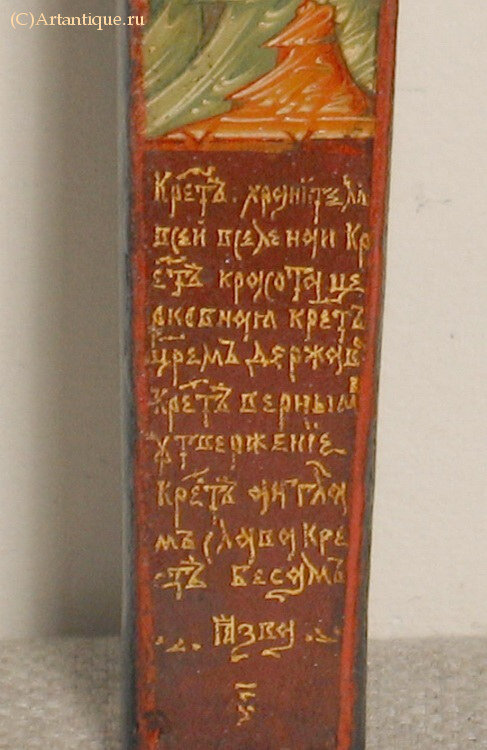 (C)Artantique.ru
Кретъ. хранітель
всей вселенои Кр
етъ красота це
ркевная кретъ
цремъ держава
Кретъ верным
утвержение
Кретъ англа
мъ слава Кре
тъ бесомъ
Язва